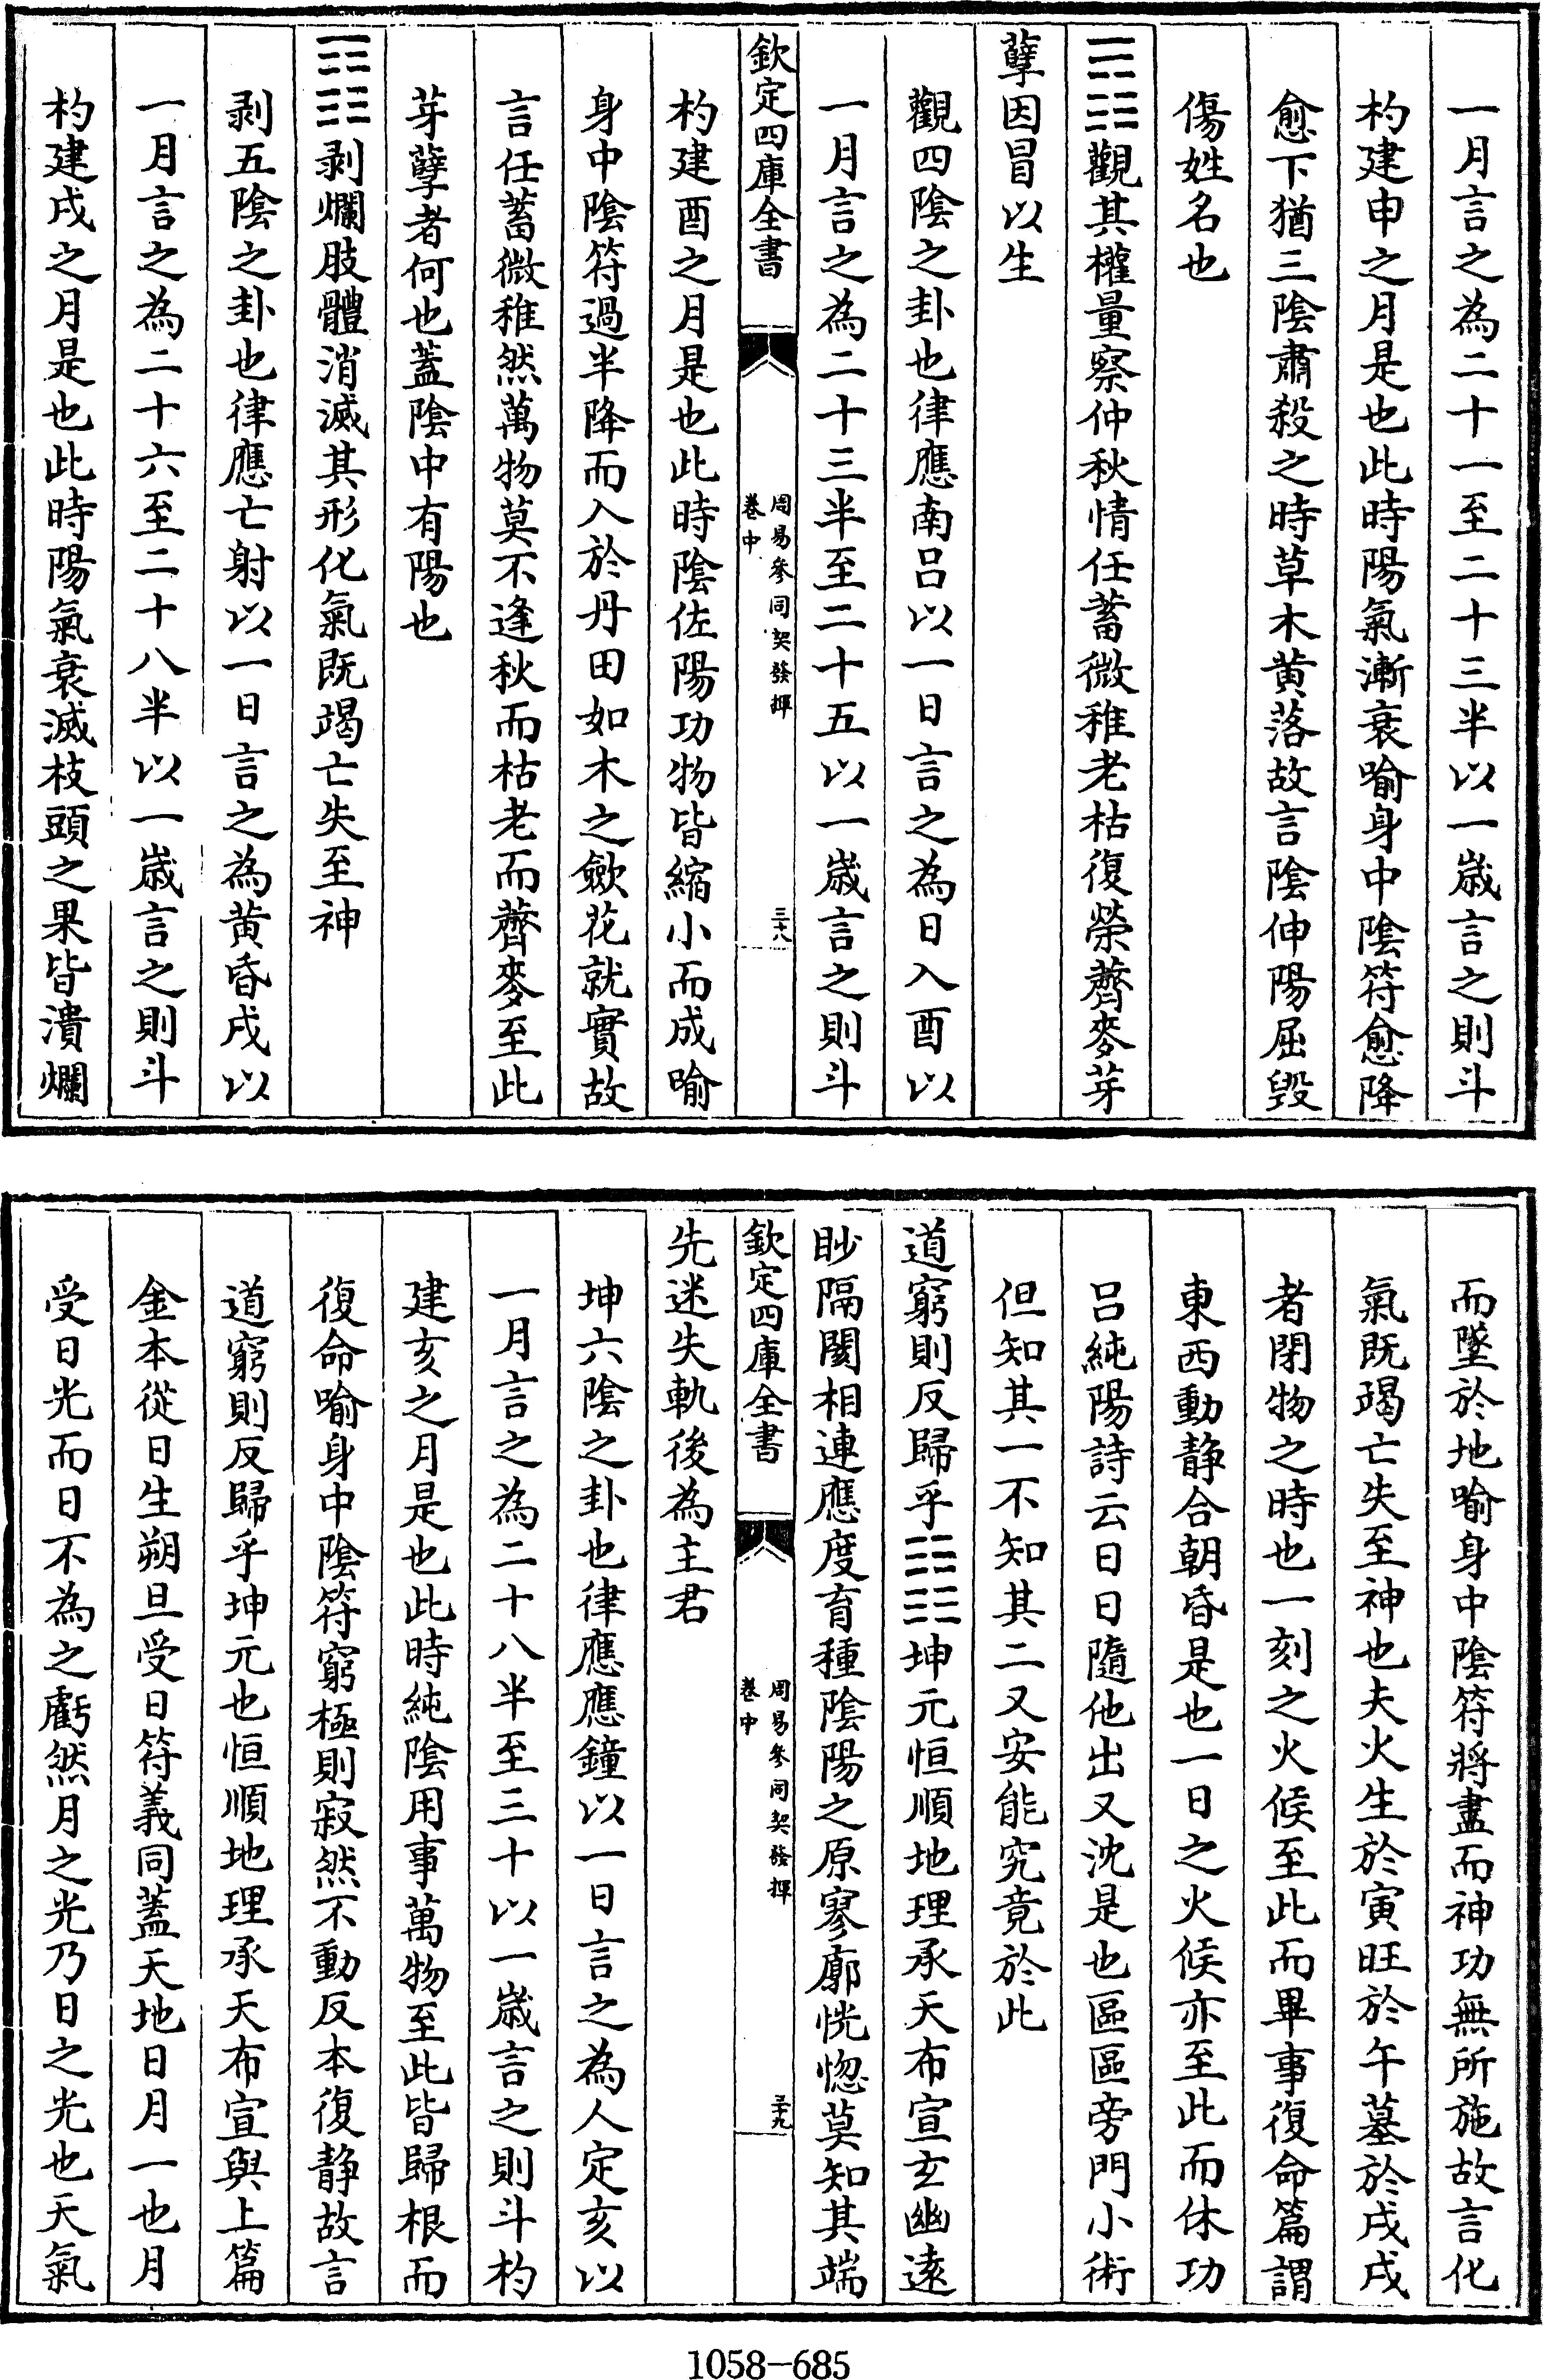 一月言之為二十一至二十三半以一嵗言之則斗
杓建申之月是也此時陽氣漸衰喻身中陰符愈降
愈下猶三陰肅殺之時草木黄落故言陰伸陽屈毀
傷姓名也
䷓觀其權量察仲秋情任蓄微稚老枯復榮薺麥芽
孽因冒以生
觀四陰之卦也律應南呂以一日言之為日入酉以
一月言之為二十三半至二十五以一嵗言之則斗
欽定四庫全書
周易參同契發揮
卷中
三十八
杓建酉之月是也此時陰佐陽功物皆縮小而成喻
身中陰符過半降而入於丹田如木之歛花就實故
言任蓄微稚然萬物莫不逢秋而枯老而薺麥至此
芽孽者何也蓋陰中有陽也
䷖剥爛肢體消滅其形化氣既竭亡失至神
剥五陰之卦也律應亡射以一日言之為黄昏戌以
一月言之為二十六至二十八半以一嵗言之則斗
杓建戌之月是也此時陽氣衰滅枝頭之果皆潰爛
而墜於地喻身中陰符將盡而神功無所施故言化
氣既竭亡失至神也夫火生於寅旺於午墓於戌戌
者閉物之時也一刻之火候至此而畢事復命篇謂
東西動静合朝昏是也一日之火候亦至此而休功
呂純陽詩云日日隨他出又沈是也區區旁門小術
但知其一不知其二又安能究竟於此
道窮則反歸乎䷁坤元恒順地理承天布宣玄幽逺
眇隔閡相連應度育種陰陽之原寥廓恍惚莫知其端
欽定四庫全書
周易參同契發揮
卷中
三十九
先迷失軌後為主君
坤六陰之卦也律應應鐘以一日言之為人定亥以
一月言之為二十八半至三十以一嵗言之則斗杓
建亥之月是也此時純陰用事萬物至此皆歸根而
復命喻身中陰符窮極則寂然不動反本復静故言
道窮則反歸乎坤元也恒順地理承天布宣與上篇
金本從日生朔旦受日符義同蓋天地日月一也月
受日光而日不為之虧然月之光乃日之光也天氣
1058-685